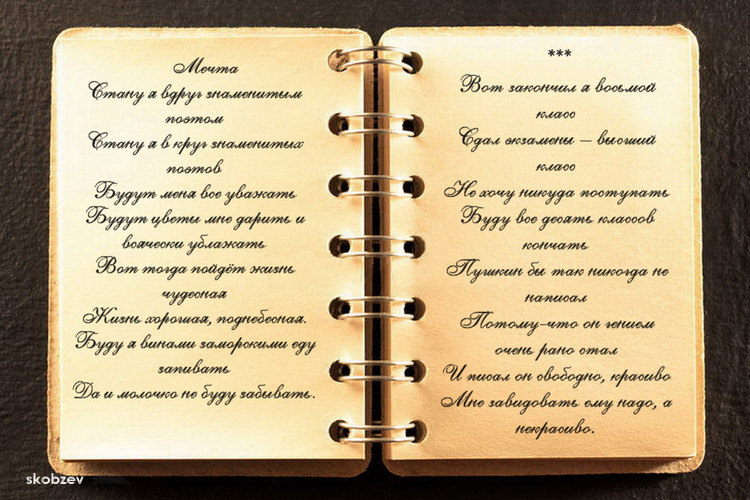 Мечта
Стану я вдруг знаменитым
поэтом
Стану я в круг знаменитых
поэтов
Будут меня все уважать
Будут цветы мне дарить и
всячески ублажать
Вот тогда пойдёт жизнь
чудесная
Жизнь хорошая, поднебесная.
Буду я винами заморскими еду
запивать
Да и молочко не буду забывать.
***
Вот закончил я восьмой
класс
Сдал экзамены – высший
класс
Не хочу никуда поступать
Буду все десять классов
кончать
Пушкин бы так никогда не
написал
Потому-что он гением
очень рано стал
И писал он свободно, красиво
Мне завидовать ему надо, а
некрасиво.
skobzev